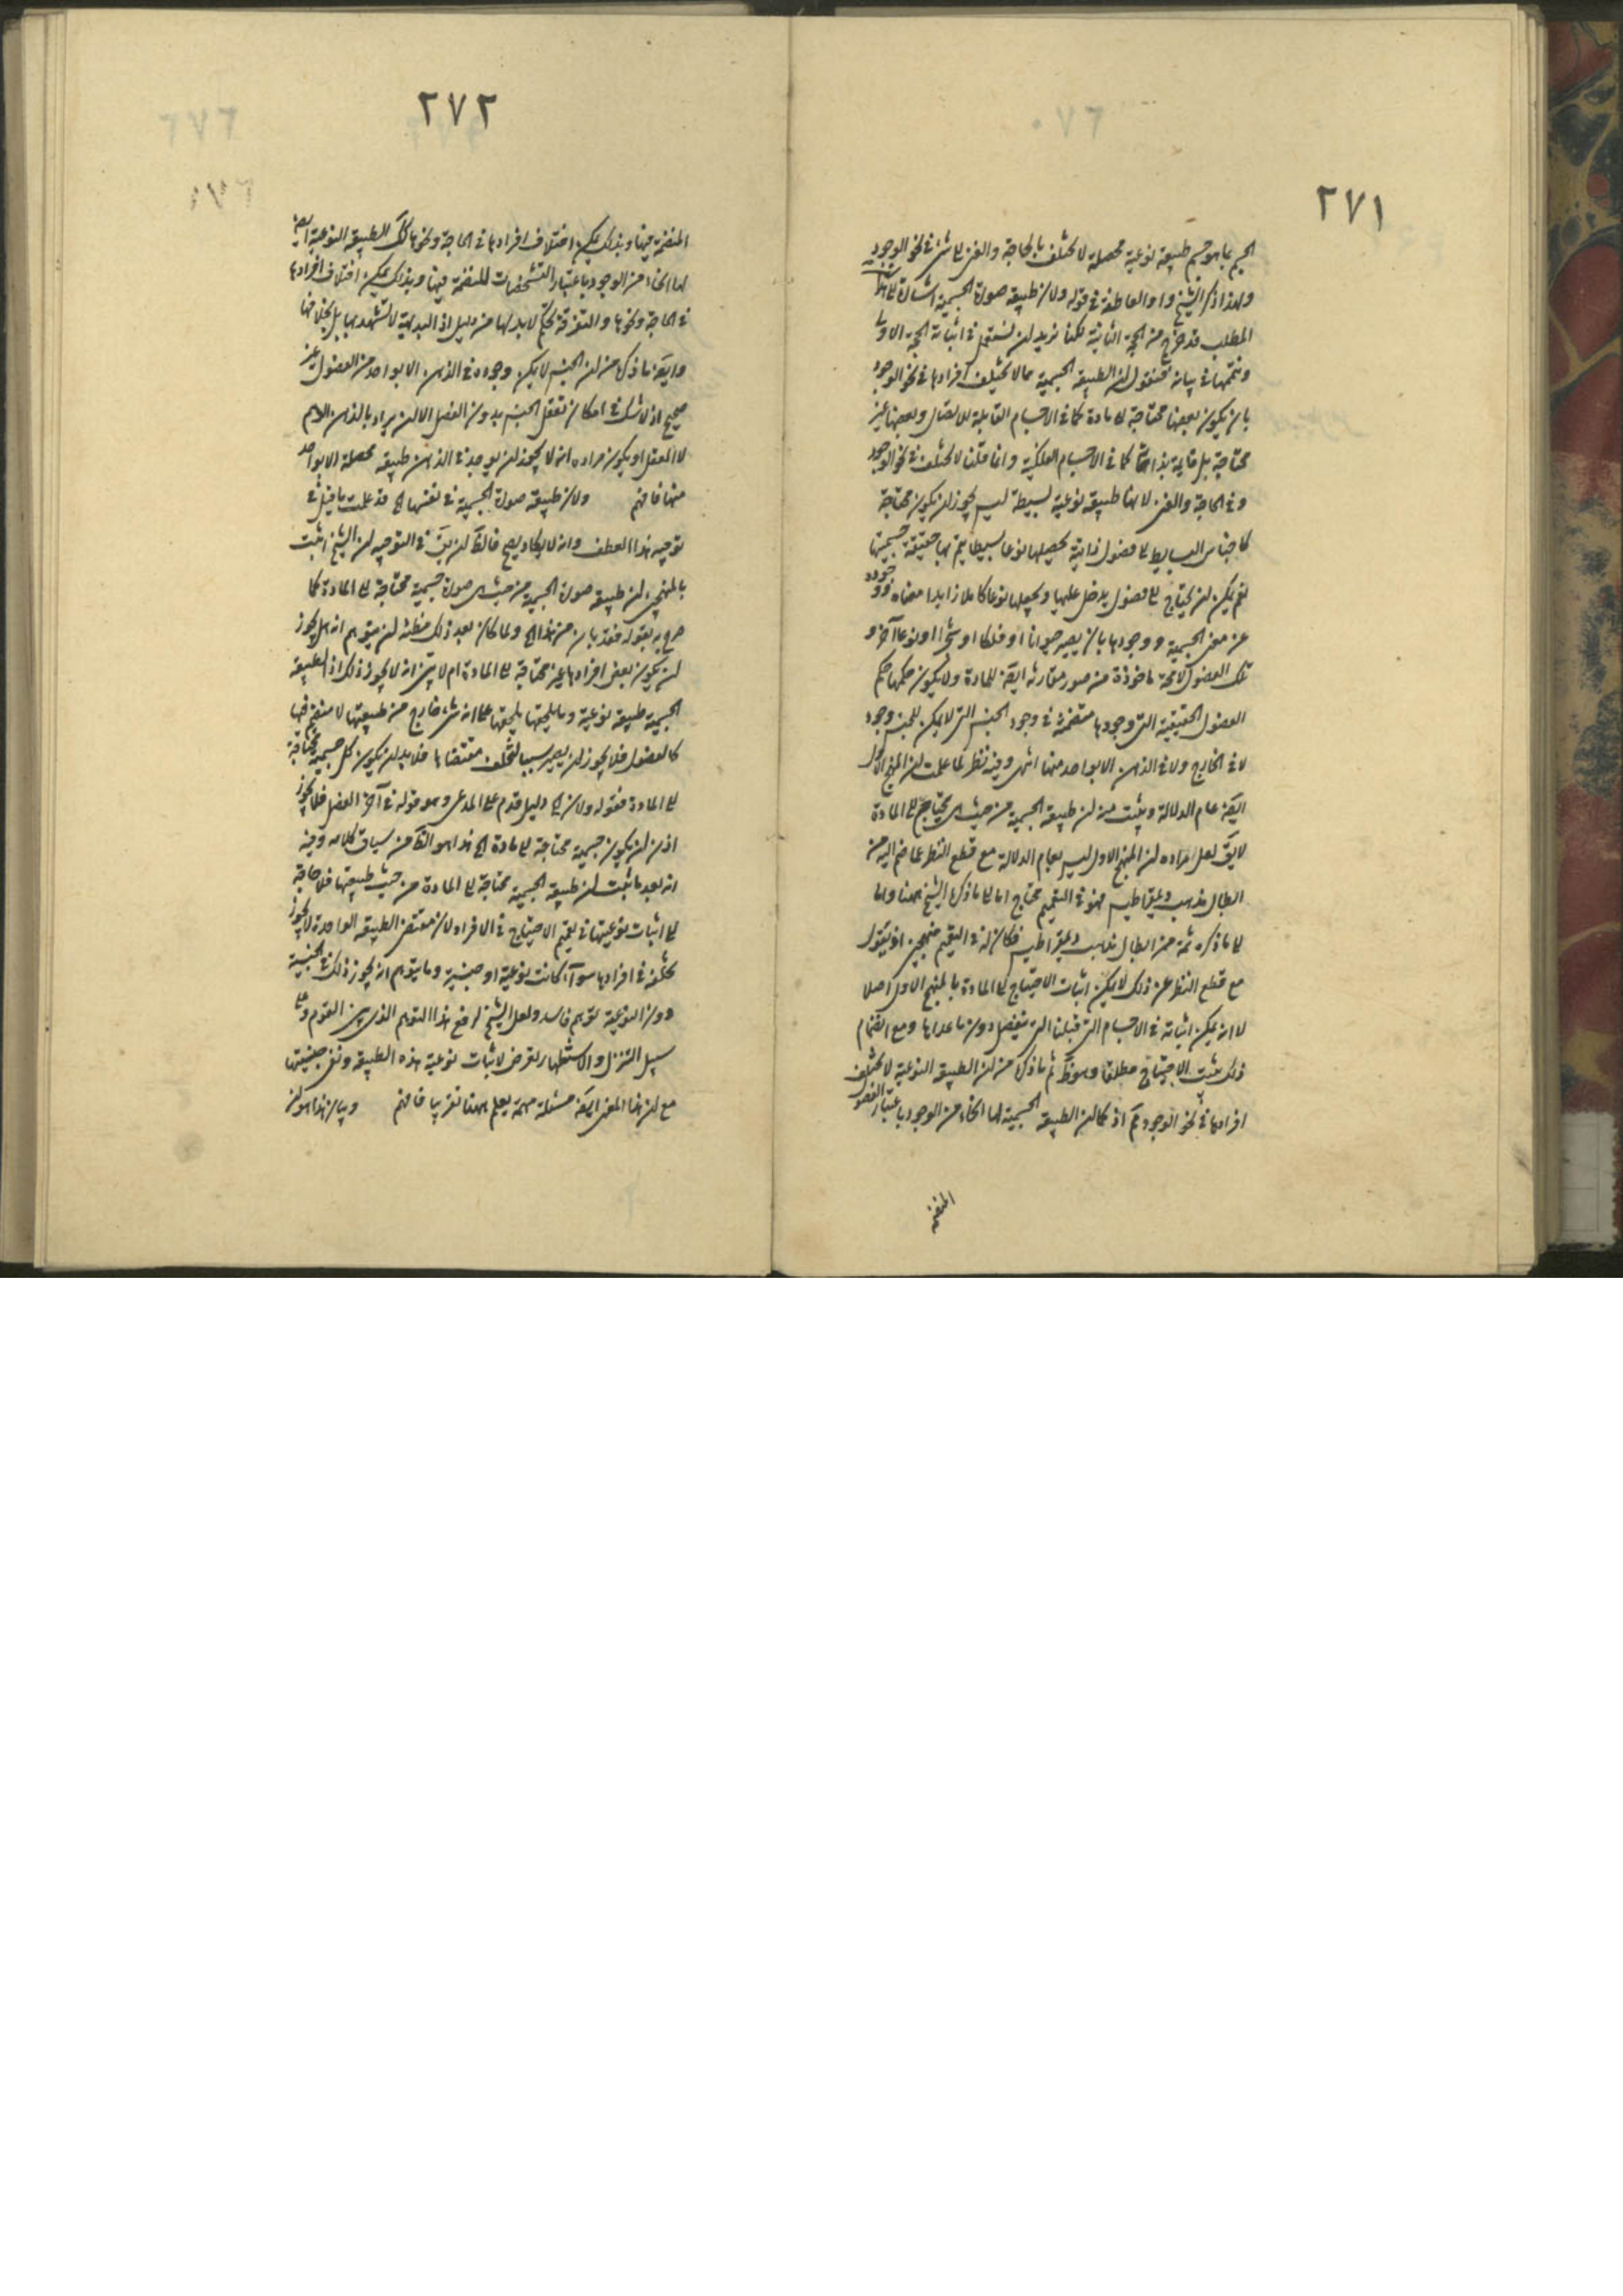 ٢٧١
الجسم بما هو جسم طبيعة نوعية محصلة لا تختلف بالحاجة والغنى الى شئ فى نحو الوجود
ولهذا ذكر الشيخ واو العاطفة فى قوله ولان طبيعة صورة الجسمية اشارة الى
المطلب قد خرج من الحجة الثانية لكنا نريد ان نستعمل فى اثباته الحجة الاولى
ونتمها فى بيانه فنقول ان الطبيعة الجسمية مما لا تختلف افرادها فى نحو الوجود
بان يكون بعضها محتاجة الى مادة كما فى الاجسام القابلة للانفصال وبعضها غير
محتاجة بل قايمة بذاتها كما فى الاجسام الفلكية وانما قلنا لا تختلف فى نحو الوجود
وفى الحاجة والغنى لانها طبيعة نوعية بسيطة ليس يجوز ان يكون محتاجة
كاجناس البسايط الى فصول ذاتية يحصلها نوعا بسيطا يتم بها حقيقة جسميتها
نعم يمكن ان يحتاج الى فصول يدخل عليها ويجعلها نوعا كاملا زايدا معناه ووجوده
عن معنى الجسمية ووجودها بان يصير حيوانا او فلكا او شجرا او نوعا آخر و
تلك الفصول لا محة ماخوذة من صور مقارنة ايضَ للمادة ولا يكون حكمها حكم
الفصول الحقيقية التى وجودها متضمنة فى وجود الجنس التى لا يمكن للجنس وجود
لا فى الخارج ولا فى الذهن الا بواحد منها انتهى وفيه نظر لما علمت ان المنهج الاول
ايضَ عام الدلالة ويثبت منه ان طبيعة الجسمية من حيث هى يحتاج الى المادة
لا يقَ لعل مراده ان المنهج الاول ليس بعام الدلالة مع قطع النظر عما ضم اليه من
ابطال مذهب ذيمقراطيس فهو فى التعميم محتاج اما الى ما ذكره الشيخ ههنا واما
الى ما ذكره ثمة من ابطال مذهب ذيمقراطيس فكان له فى التعميم منهجين او نقول
مع قطع النظر عن ذلك لا يمكن اثبات الاحتياج الى المادة بالمنهج الاول اصلا
لا انه يمكن اثباته فى الاجسام التى قبلنا التى تنفصل دون ما عداها ومع انضمام
ذلك يثبت الاحتياج مطلقا وهو ظَ ثم ما ذكره من ان الطبيعة النوعية لا تختلف
افرادها فى نحو الوجود مَ اذ كما ان الطبيعة الجسمية لها انحاء من الوجود باعتبار الفصول
المنضمة
٢٧٢
المنضمة فيها وبذلك يمكن اختلاف افرادها فى الحاجة ونحوها كك الطبيعة النوعية ايضَ
لها انحاء من الوجود باعتبار التشخصات المنضمة فيها وبذلك يمكن اختلاف افرادها
فى الحاجة ونحوها والتفرقة تحكم لا بد لها من دليل اذ البديهة لا تشهد بها بل بخلافها
وايضَ ما ذكره من ان الجنس لا يمكن وجوده فى الذهن الا بواحد من الفصول غير
صحيح اذ لا شك فى امكان تعقل الجنس بدون الفصل الا ان يراد بالذهن الوهم
لا العقل او يكون مراده انه لا يجوز ان يوجد فى الذهن طبيعة محصلة الا بواحد
منها فافهم ولان طبيعة صورة الجسمية فى نفسها الخ قد علمت ما قيل فى
توجيه هذا العطف وانه لا يكاد يصح فالظَ ان يقَ فى التوجيه ان الشيخ اثبت
بالمنهجين ان طبيعة صورة الجسمية من حيث هى صورة جسمية محتاجة الى المادة كما
صرح به بقوله فقد بان من هذا الخ ولما كان بعد ذلك مظنة ان يتوهم انه هل يجوز
ان يكون بعض افرادها غير محتاجة الى المادة ام لا بين انه لا يجوز ذلك اذ الطبيعة
الجسمية طبيعة نوعية وما يلحقها يلحقها على انه شئ خارج من طبيعتها لا منضم فيها
كالفصول فلا يجوز ان يصير سببا لتخلف مقتضاها فلا بد ان يكون كل جسمية محتاجة
الى المادة فقوله ولان الخ دليل قدم على المدعى وهو قوله فى آخر الفصل فلا يجوز
اذن ان يكون جسمية محتاجة الى مادة الخ هذا هو الظَ من سياق كلامه وفيه
انه بعد ما ثبت ان طبيعة الجسمية محتاجة الى المادة من حيث طبيعتها فلا حاجة
الى اثبات نوعيتها فى تعميم الاحتياج فى الافراد لان مقتضى الطبيعة الواحدة لا يجوز
تخلفه فى افرادها سواء كانت نوعية او جنسية وما يتوهم انه يجوز ذلك فى الجنسية
دون النوعية توهم فاسد ولعل الشيخ لرفع هذا التوهم الذى بين القوم وعلى
سبيل التنزل والاستظهار تعرض لاثبات نوعية هذه الطبيعة ونفى جنسيتها
مع ان هذا المعنى ايضَ مسئلة مهمة يعلم ههنا تقريبا فافهم وبيان هذا هو ان